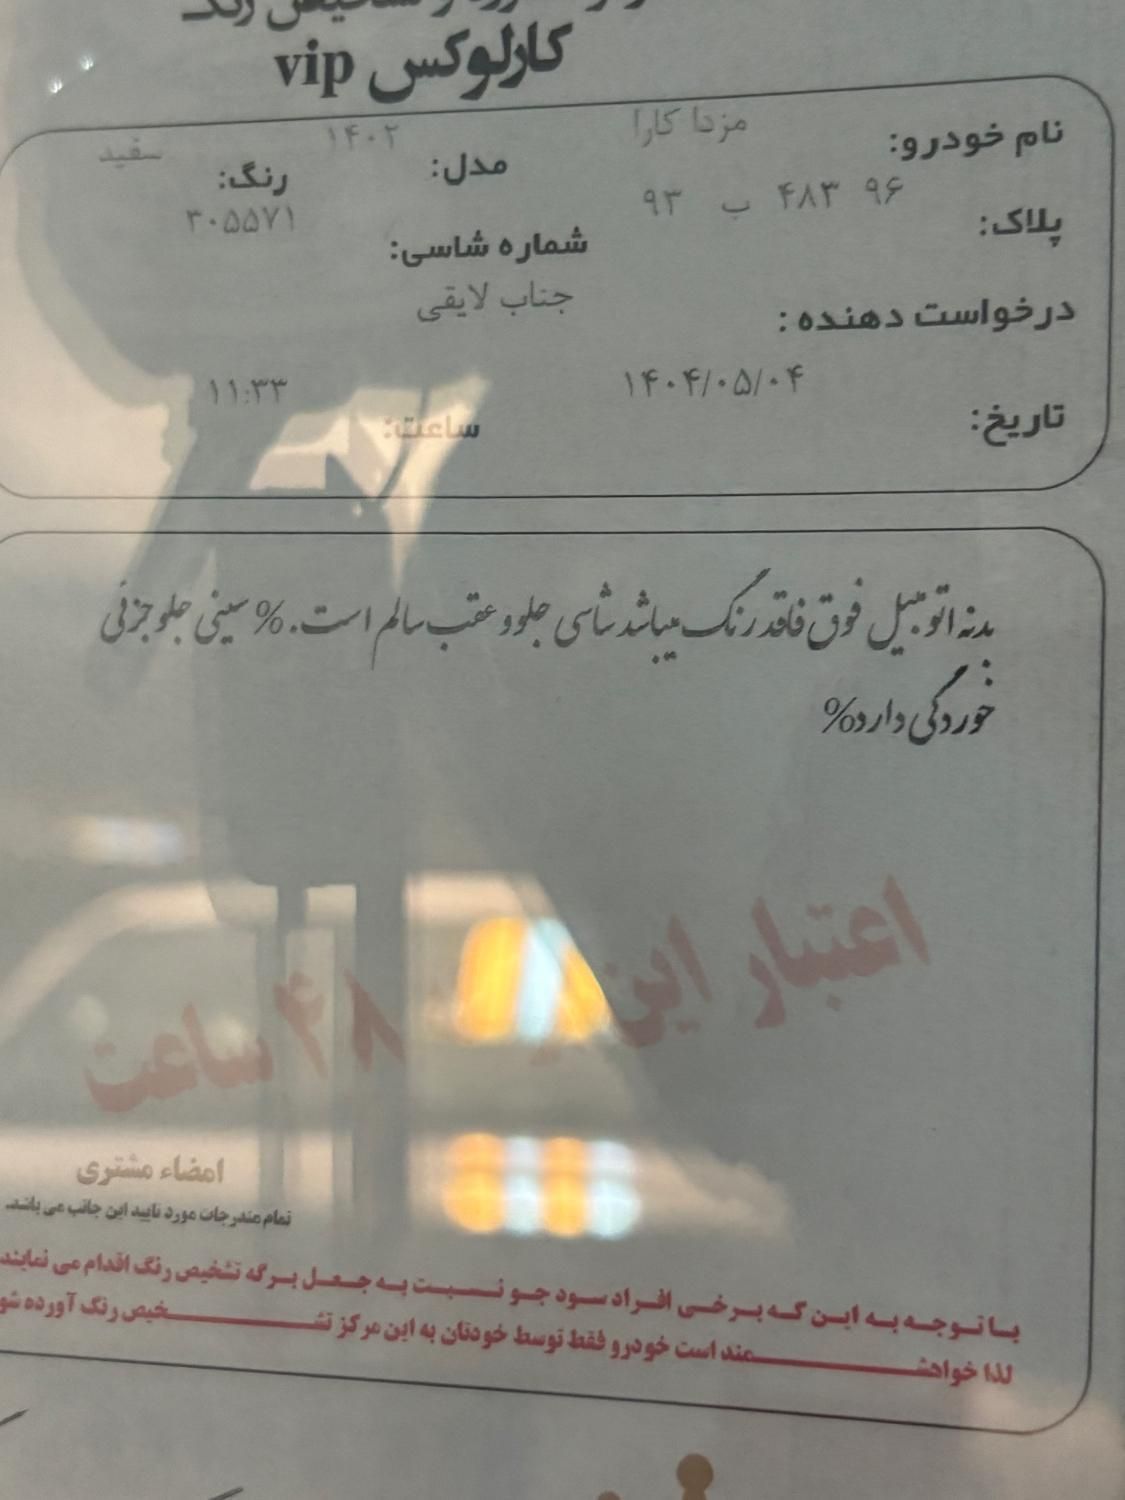 تشخیص رنگ
کارلوکس vip
نام خودرو: مزدا کارا مدل: ۱۴۰۲ رنگ: سفید
پلاک: ۹۶ ۴۸۳ ب ۹۳ شماره شاسی: ۳۰۵۵۷۱
درخواست دهنده : جناب لایقی
تاریخ: ۱۴۰۴/۰۵/۰۴ ساعت: ۱۱:۳۳
بدنه اتومبیل فوق فاقد رنگ میباشد شاسی جلو و عقب سالم است. % سینی جلو جزئی
خوردگی دارد%
اعتبار این ۴۸ ساعت
امضاء مشتری
تمام مندرجات مورد تایید این جانب می باشد.
با توجه به این که برخی افراد سود جو نسبت به جعل برگه تشخیص رنگ اقدام می نمایند
لذا خواهشمند است خودرو فقط توسط خودتان به این مرکز تشخیص رنگ آورده شو